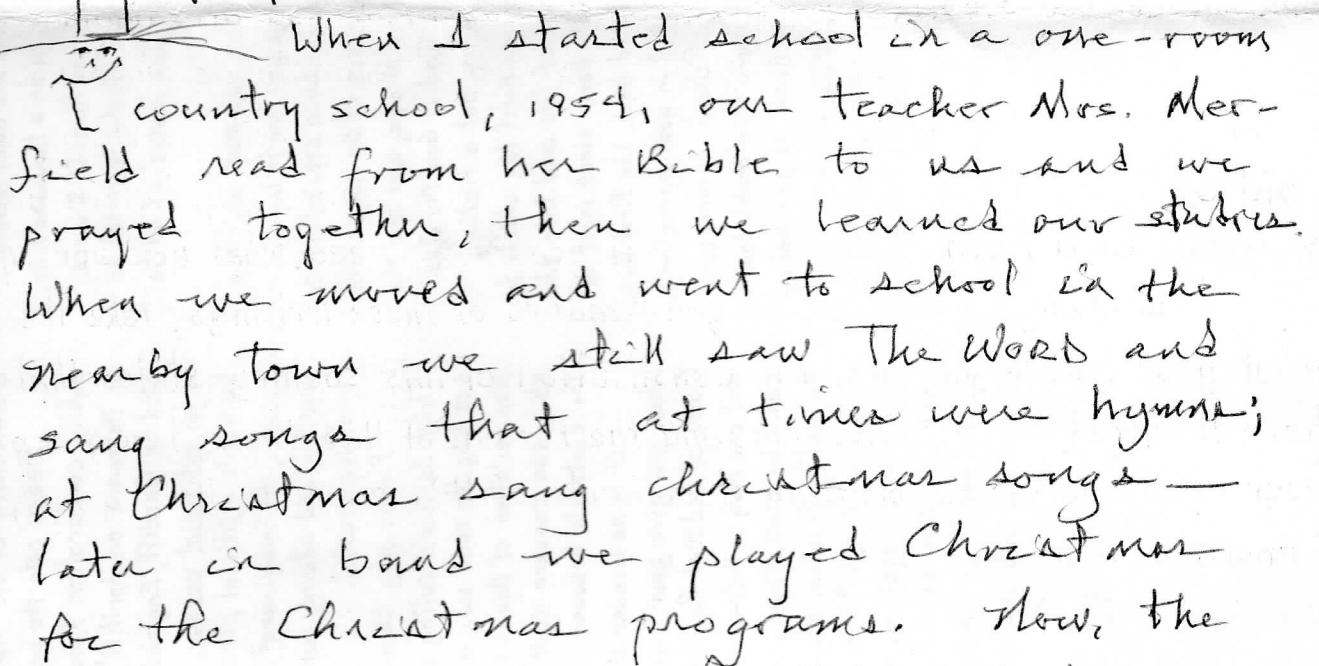 When I started school in a one-room
country school, 1954, our teacher Mrs. Mer-
field read from her Bible to us and we
prayed together, then we learned our studies.
When we moved and went to school in the
nearby town we still saw The WORD and
sang songs that at times were hymns;
at Christmas sang christmas songs —
later in band we played Christmas
for the Christmas programs. Now, the